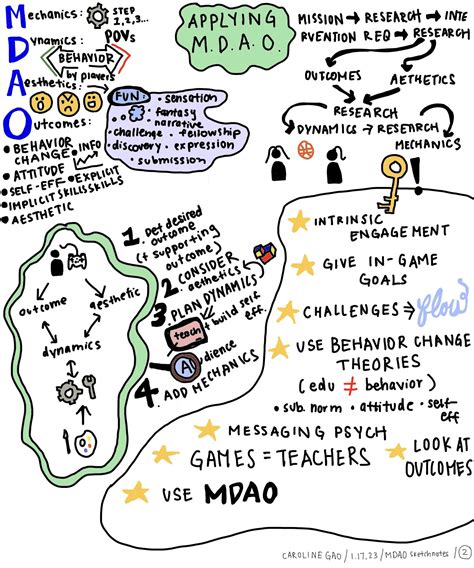 MDAO
Mechanics:
STEP
1,2,3...
Dynamics:
POVs
BEHAVIOR
by players
Aesthetics:
Outcomes:
• BEHAVIOR
CHANGE • INFO
• ATTITUDE
• SELF-EFF • EXPLICIT
• IMPLICIT SKILLS SKILLS
• AESTHETIC
FUN:
• sensation
• fantasy
• narrative
• challenge • fellowship
• discovery • expression
• submission
APPLYING
M.D.A.O.
MISSION → RESEARCH → INTE
RVENTION REQ → RESEARCH
OUTCOMES
AETHETICS
RESEARCH
DYNAMICS → RESEARCH
MECHANICS
outcome
aesthetic
dynamics
1. Det desired
outcome
(+ supporting
outcome)
2. CONSIDER
aesthetics
3 PLAN DYNAMICS
teach
+ build self
eff.
Audience
4. ADD MECHANICS
!
INTRINSIC
ENGAGEMENT
GIVE IN-GAME
GOALS
CHALLENGES → flow
USE BEHAVIOR CHANGE
THEORIES
(edu ≠ behavior)
• sub. norm • attitude • self
eff
MESSAGING PSYCH
GAMES = TEACHERS
LOOK AT
OUTCOMES
USE MDAO
CAROLINE GAO / 1.17.23 / MDAO sketchnotes / 2